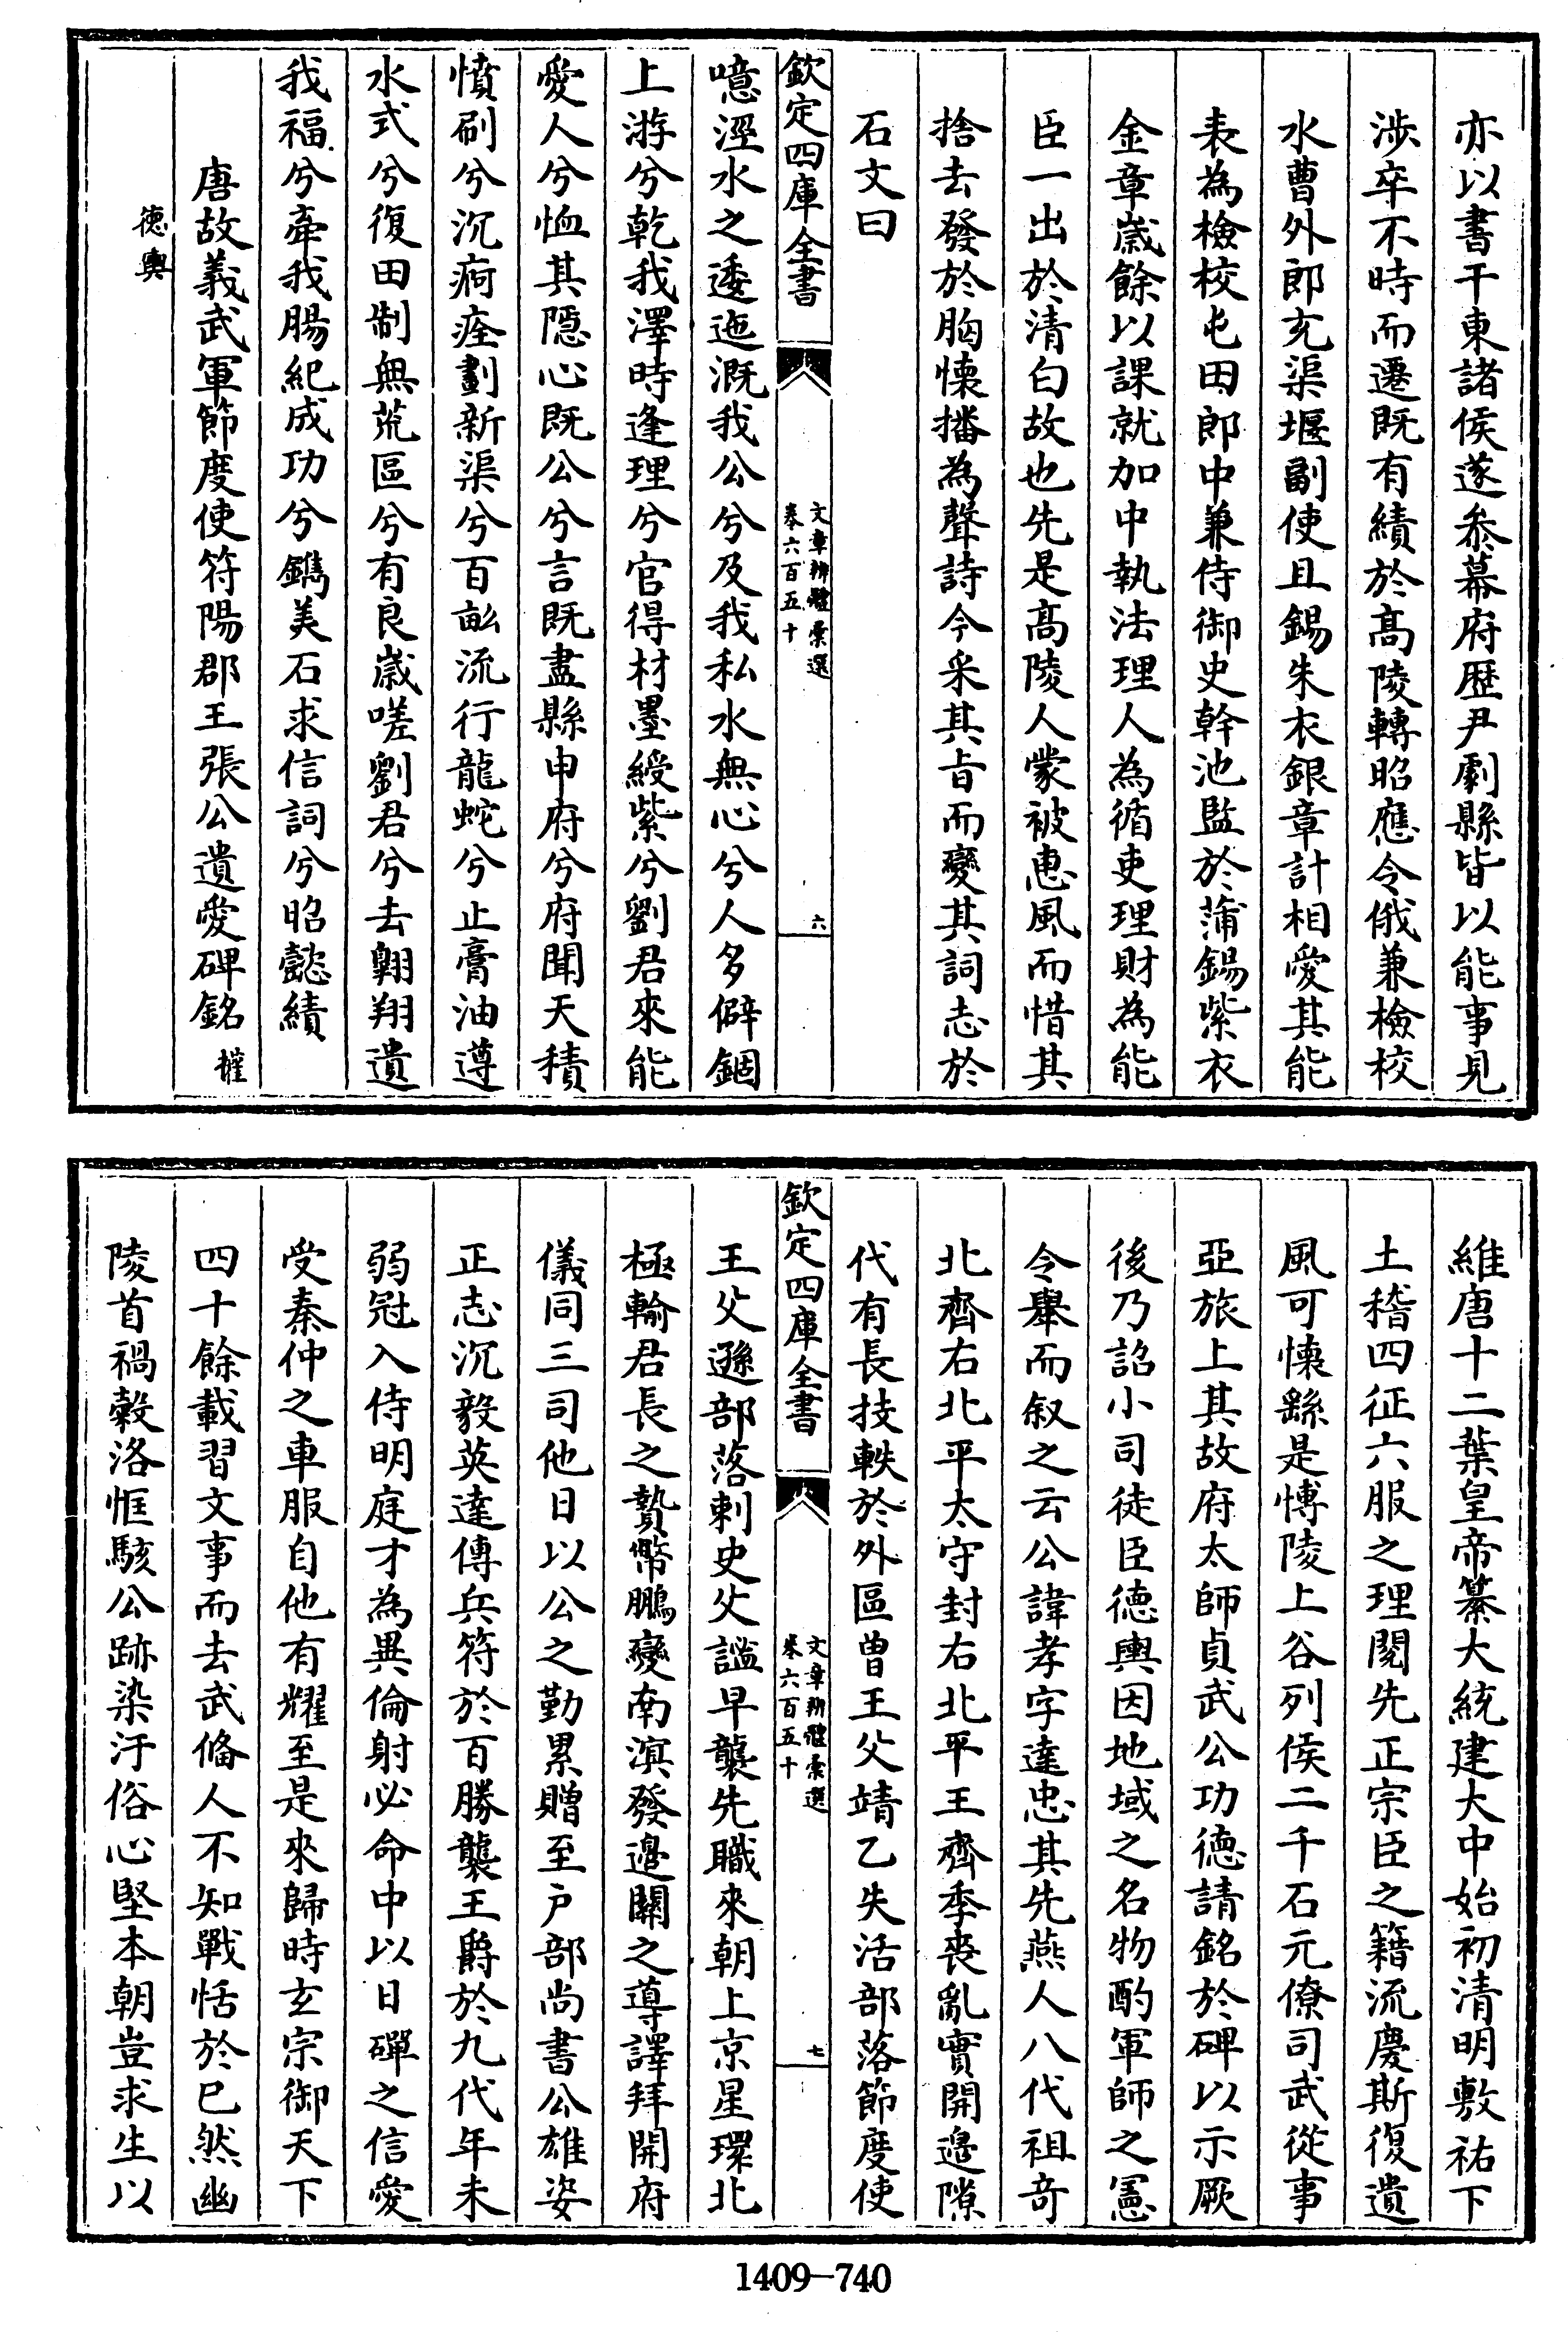 亦以書干東諸侯遂叅幕府歴尹劇縣皆以能事見
渉卒不時而遷既有績於髙陵轉昭應令俄兼檢校
水曹外郎充渠堰副使且錫朱衣銀章計相愛其能
表為檢校屯田郎中兼侍御史幹池監於蒲錫紫衣
金章嵗餘以課就加中執法理人為循吏理財為能
臣一出於清白故也先是髙陵人蒙被惠風而惜其
捨去發於胸懐播為聲詩今采其旨而變其詞志於
石文曰
欽定四庫全書
文章辨體彚選
卷六百五十
六
噫涇水之逶迤溉我公兮及我私水無心兮人多僻錮
上游兮乾我澤時逢理兮官得材墨綬紫兮劉君來能
愛人兮恤其隱心既公兮言既盡縣申府兮府聞天積
憤刷兮沉疴痊劃新渠兮百畝流行龍蛇兮止膏油遵
水式兮復田制無荒區兮有良嵗嗟劉君兮去翺翔遺
我福兮牽我腸紀成功兮鐫美石求信詞兮昭懿績
唐故義武軍節度使符陽郡王張公遺愛碑銘 權
德輿
維唐十二葉皇帝纂大統建大中始初清明敷祐下
土稽四征六服之理閱先正宗臣之籍流慶斯復遺
風可懐繇是博陵上谷列侯二千石元僚司武從事
亞旅上其故府太師貞武公功德請銘於碑以示厥
後乃詔小司徒臣德輿因地域之名物酌軍師之憲
令舉而叙之云公諱孝字達忠其先燕人八代祖竒
北齊右北平太守封右北平王齊季喪亂實開邉隙
代有長技軼於外區曽王父靖乙失活部落節度使
欽定四庫全書
文章辨體彚選
卷六百五十
七
王父遜部落刺史父謐早襲先職來朝上京星環北
極輸君長之贄幣鵬變南溟發邉關之導譯拜開府
儀同三司他日以公之勤累贈至户部尚書公雄姿
正志沉毅英達傳兵符於百勝襲王爵於九代年未
弱冠入侍明庭才為異倫射必命中以日磾之信愛
受秦仲之車服自他有耀至是來歸時玄宗御天下
四十餘載習文事而去武備人不知戰恬於已然幽
陵首禍穀洛恇駭公跡染汙俗心堅本朝豈求生以
1409-740